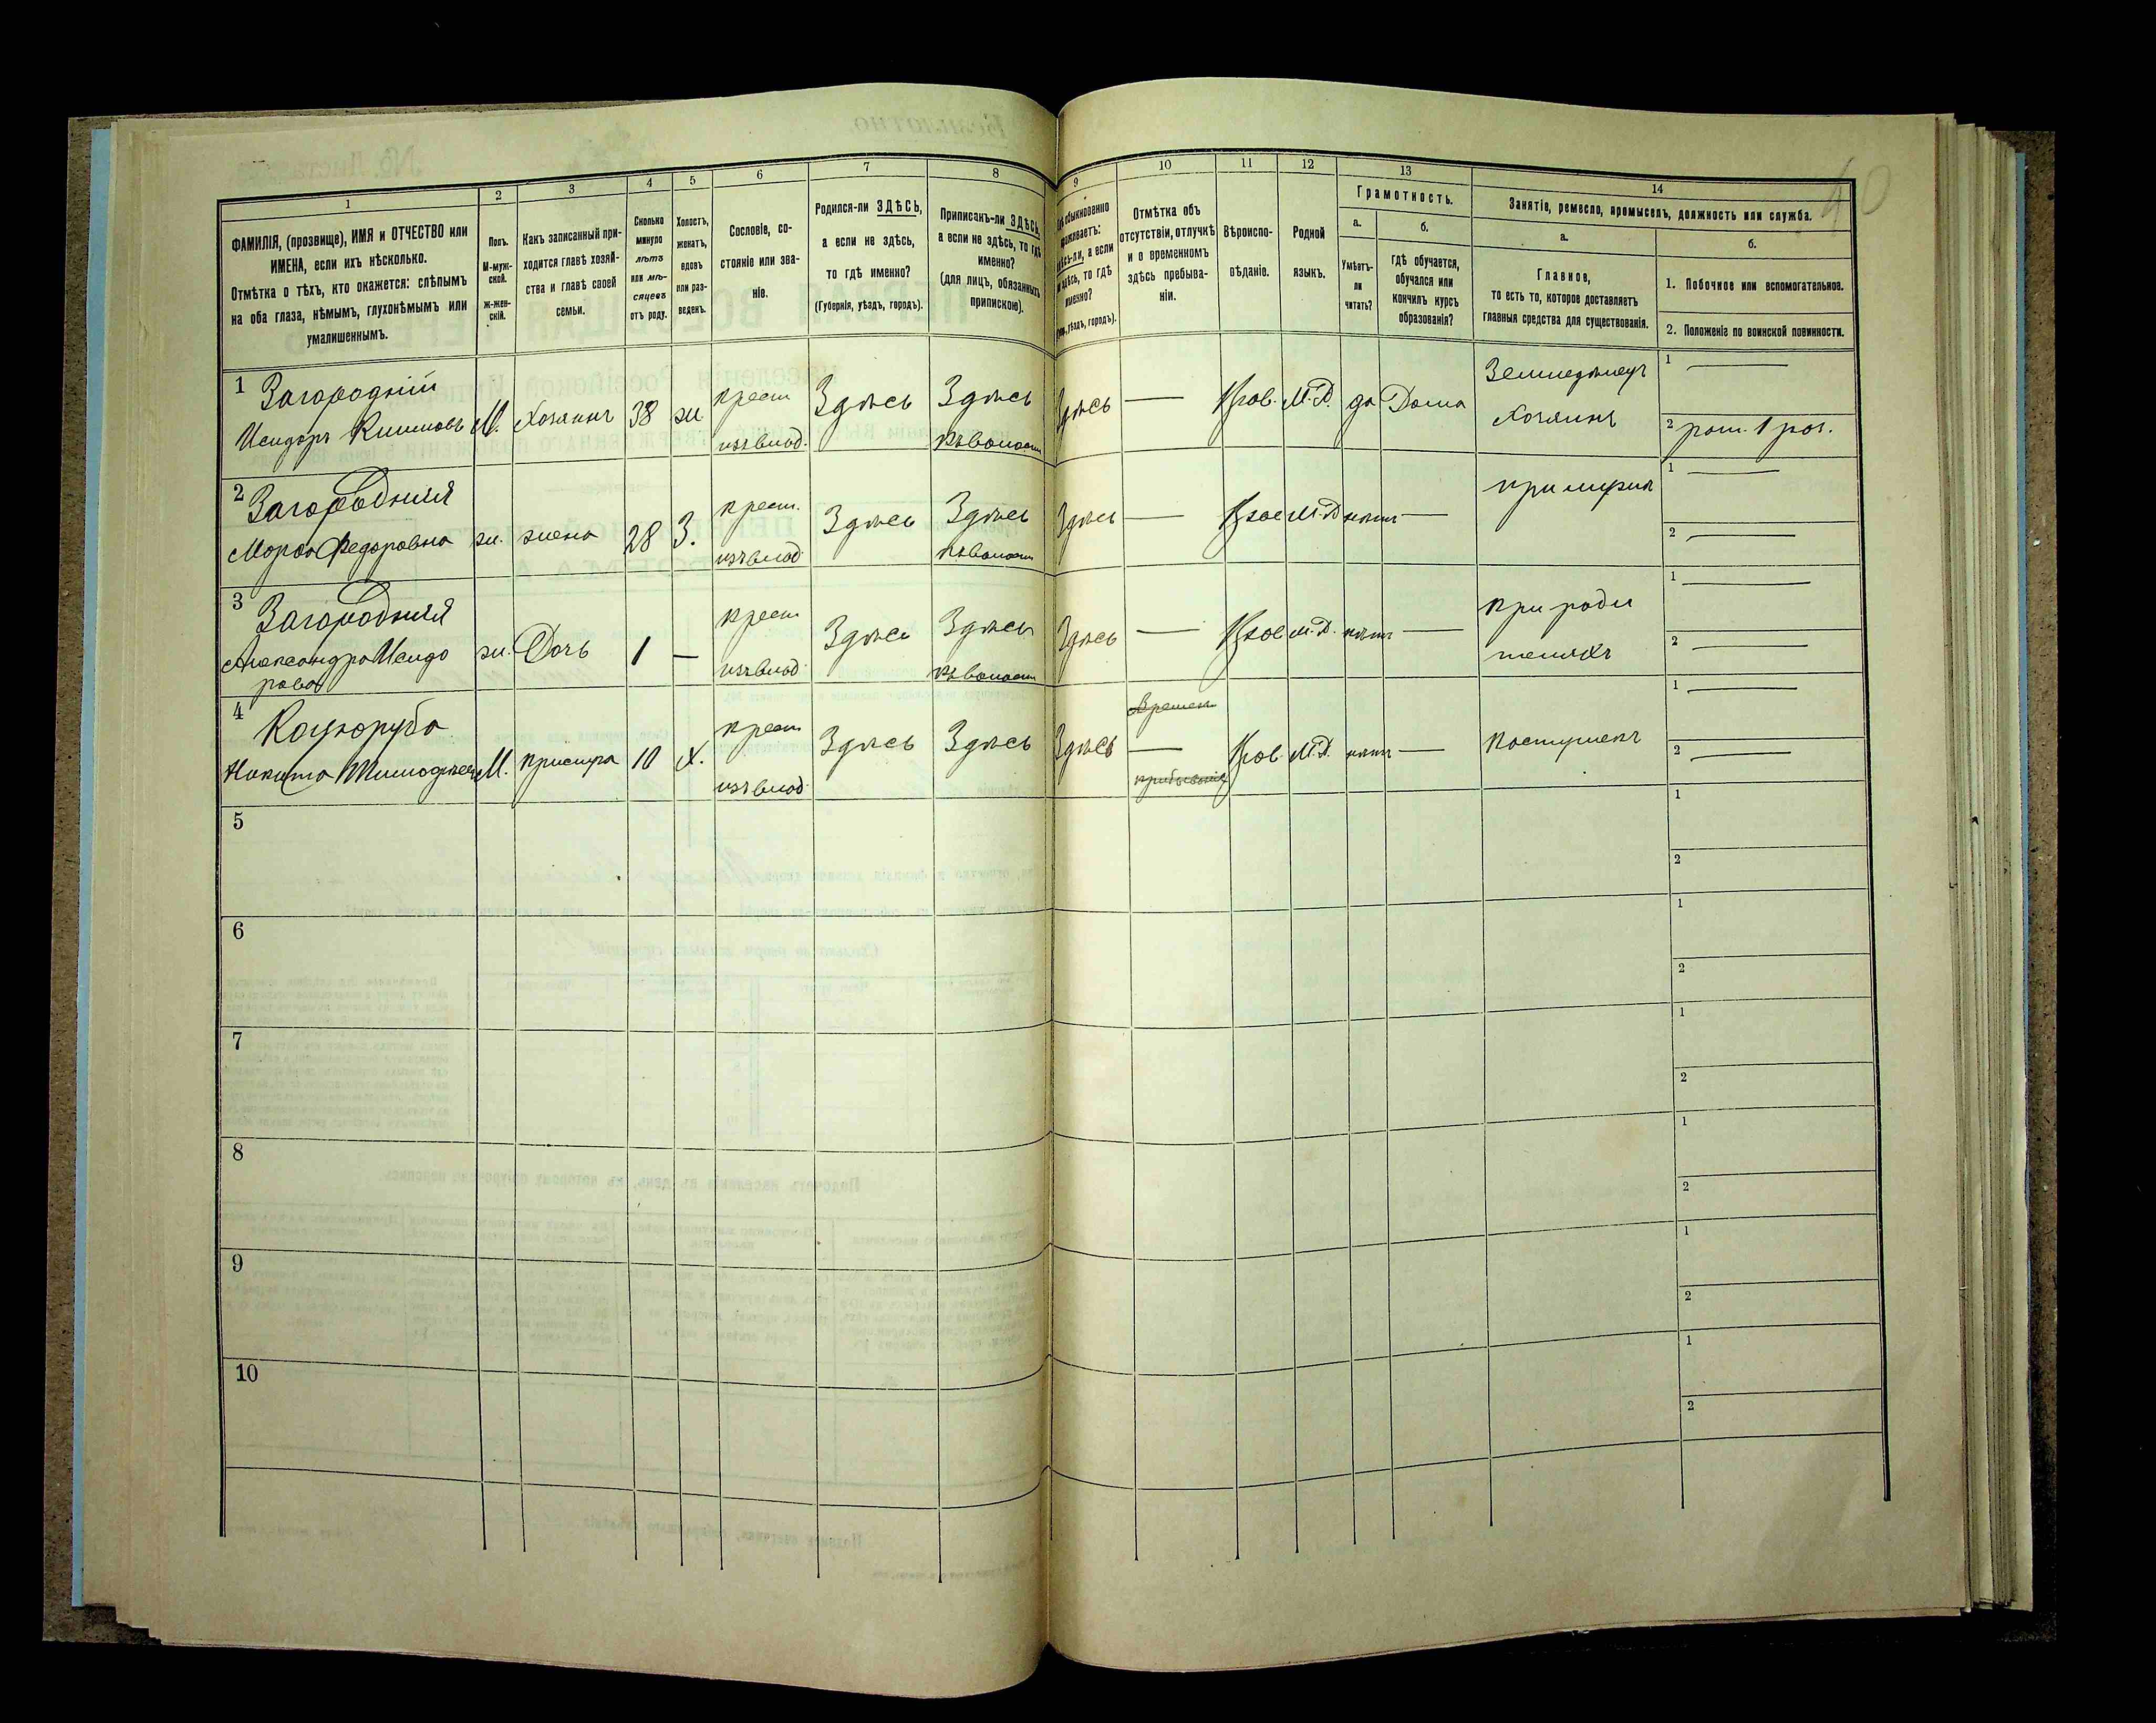 1
ФАМИЛІЯ, (прозвище), ИМЯ и ОТЧЕСТВО или
ИМЕНА, если ихъ нѣсколько.
Отмѣтка о тѣхъ, кто окажется: слѣпымъ
на оба глаза, нѣмымъ, глухонѣмымъ или
умалишеннымъ.
2
Полъ.
М-муж-
ской.
Ж-жен-
скій.
3
Какъ записанный при-
ходится главѣ хозяй-
ства и главѣ своей
семьи.
4
Сколько
минуло
лѣтъ
или мѣ-
сяцевъ
отъ роду.
5
Холостъ,
женатъ,
вдовъ
или раз-
веденъ.
6
Сословіе, со-
стояніе или зва-
ніе.
7
Родился-ли ЗДѢСЬ,
а если не здѣсь,
то гдѣ именно?
(Губернія, уѣздъ, городъ).
8
Приписанъ-ли ЗДѢСЬ,
а если не здѣсь, то гдѣ
именно?
(для лицъ, обязанныхъ
припискою).
9
обыкновенно
проживаетъ:
здѣсь-ли, а если
не здѣсь, то гдѣ
именно?
уѣздъ, городъ).
10
Отмѣтка объ
отсутствіи, отлучкѣ
и о временномъ
здѣсь пребыва-
ніи.
11
Вѣроиспо-
вѣданіе.
12
Родной
языкъ.
13
Грамотность.
а.
Умѣетъ-
ли
читать?
б.
гдѣ обучается,
обучался или
кончилъ курсъ
образованія?
14
Занятіе, ремесло, промыселъ, должность или служба.
а.
Главное,
то есть то, которое доставляетъ
главныя средства для существованія.
б.
1. Побочное или вспомогательное.
2. Положеніе по воинской повинности.
40
1 Загородній
Исидоръ Климовъ М. Хозяинъ 38 ж. крест. изъ влад. Здѣсь Здѣсь къ волости Здѣсь — Прав. М.Д. да Дома Земледѣлецъ хозяинъ 1 — 2 рат. 1 раз.
2 Загородняя
Марфа Федоровна ж. жена 28 З. крест. изъ влад. Здѣсь Здѣсь къ волости Здѣсь — Прав М.Д нѣтъ — при мужѣ 1 — 2 —
3 Загородняя
Александра Исидо
рова ж. Дочь 1 — крест изъ влад. Здѣсь Здѣсь къ волости Здѣсь — Прав М.Д. нѣтъ — при роди
теляхъ 1 — 2 —
4
Никита Тимофѣевъ М. 10 Х. крест изъ влад. Здѣсь Здѣсь Здѣсь Времен — Прав. М.Д. нѣтъ — 1 — 2 —
5 1 2
6 1 2
7 1 2
8 1 2
9 1 2
10 1 2